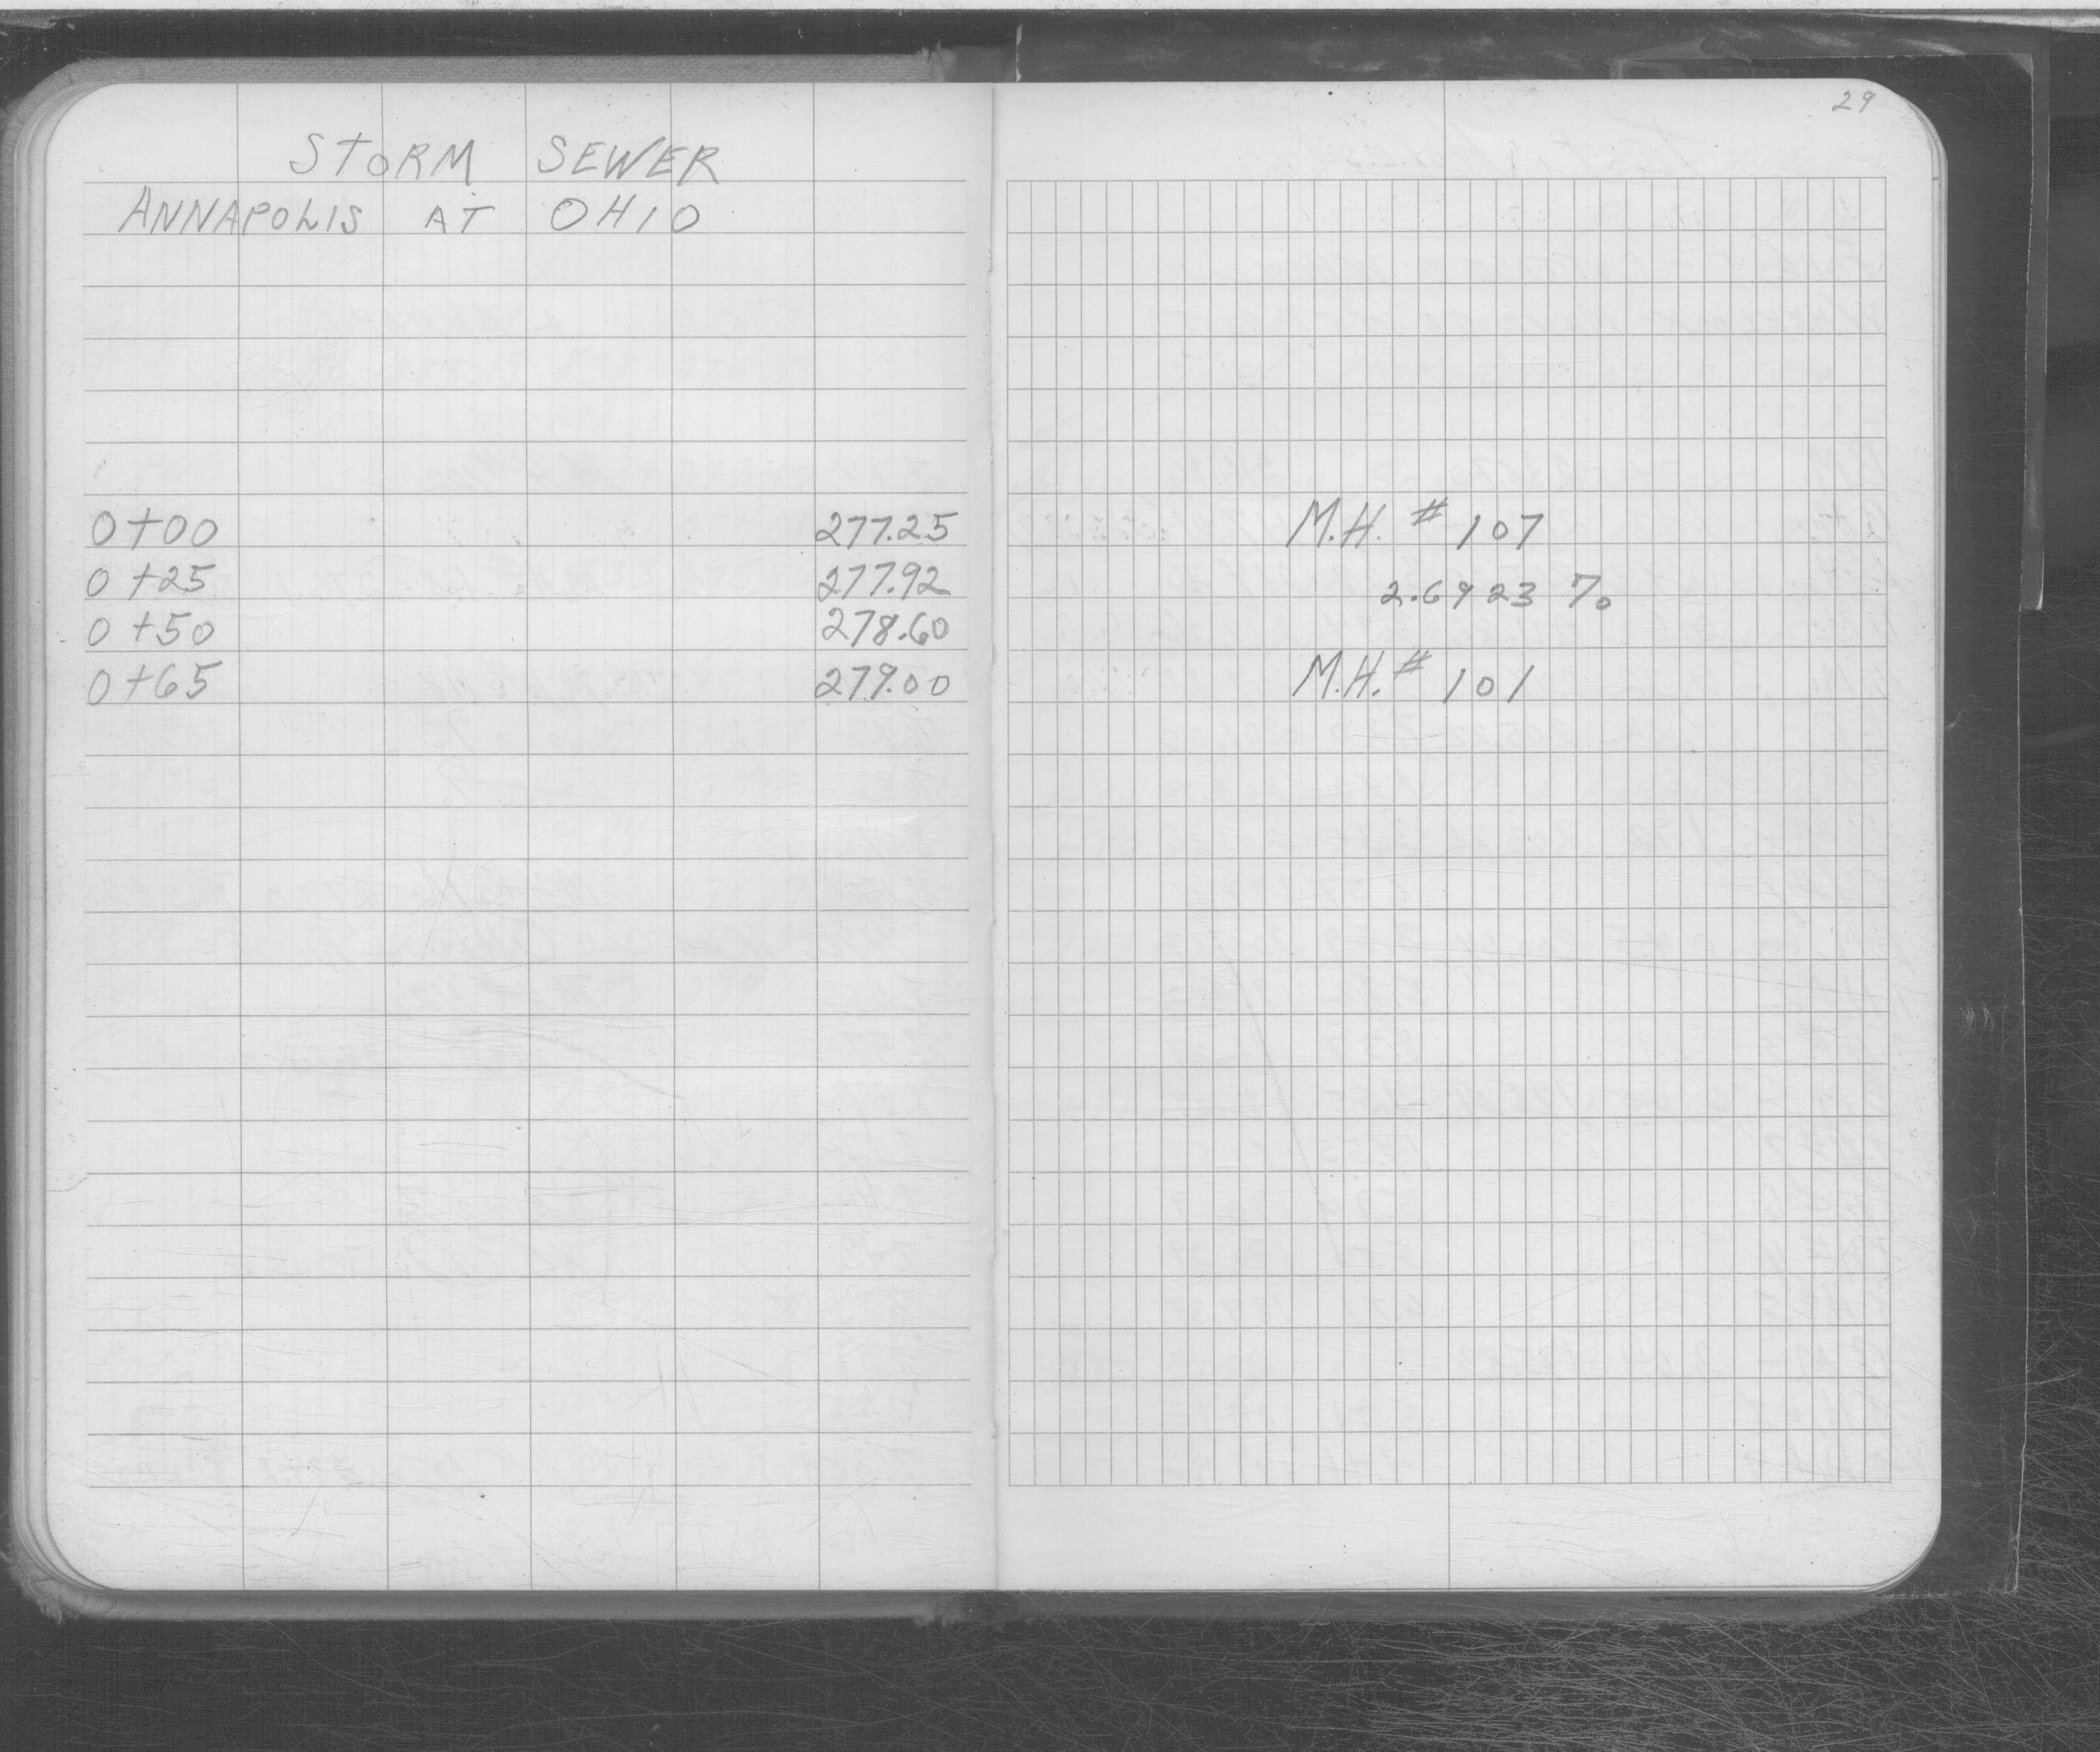 29
STORM SEWER
ANNAPOLIS AT OHIO
0+00 277.25 M.H. # 107
0+25 277.92 2.6923 %
0+50 278.60
0+65 279.00 M.H. # 101